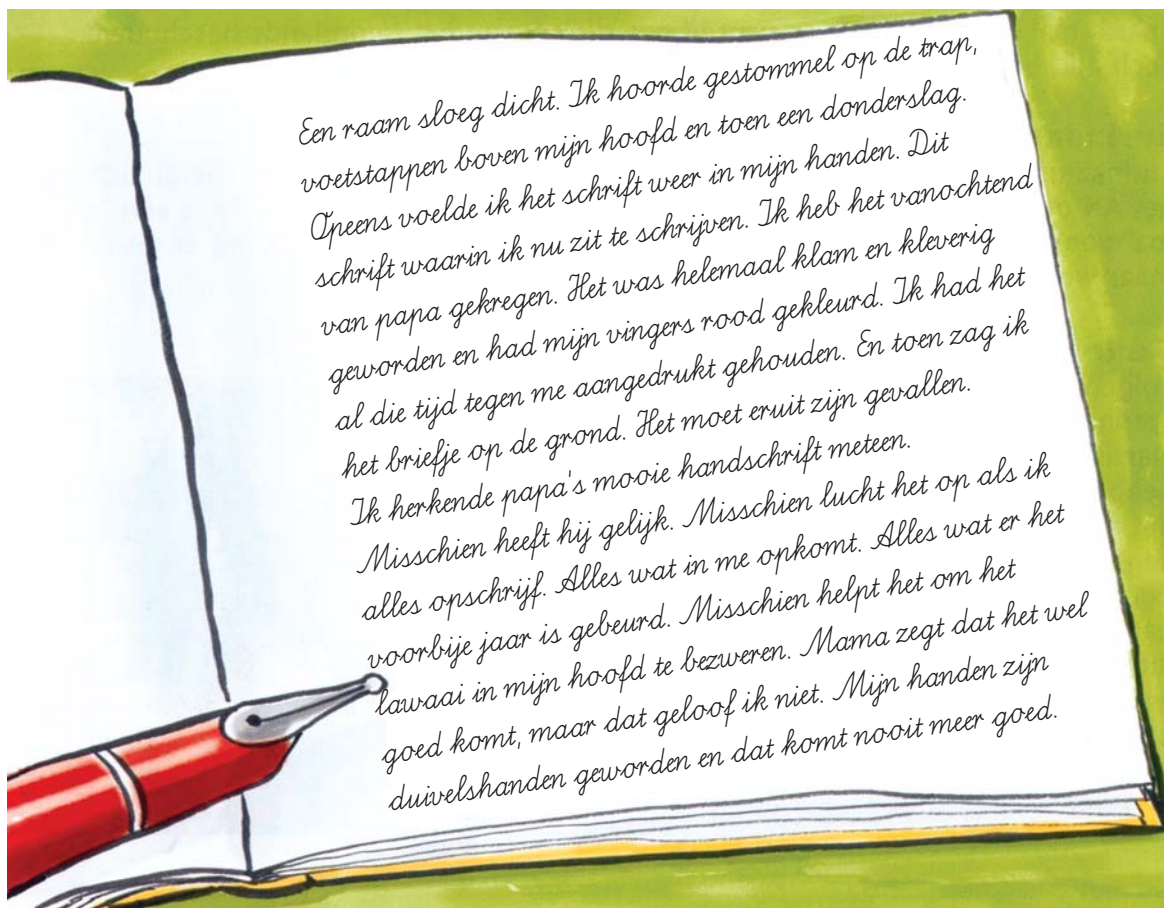 Een raam sloeg dicht. Ik hoorde gestommel op de trap,
voetstappen boven mijn hoofd en toen een donderslag.
Opeens voelde ik het schrift weer in mijn handen. Dit
schrift waarin ik nu zit te schrijven. Ik heb het vanochtend
van papa gekregen. Het was helemaal klam en kleverig
geworden en had mijn vingers rood gekleurd. Ik had het
al die tijd tegen me aangedrukt gehouden. En toen zag ik
het briefje op de grond. Het moet eruit zijn gevallen.
Ik herkende papa's mooie handschrift meteen.
Misschien heeft hij gelijk. Misschien lucht het op als ik
alles opschrijf. Alles wat in me opkomt. Alles wat er het
voorbije jaar is gebeurd. Misschien helpt het om het
lawaai in mijn hoofd te bezweren. Mama zegt dat het wel
goed komt, maar dat geloof ik niet. Mijn handen zijn
duivelshanden geworden en dat komt nooit meer goed.